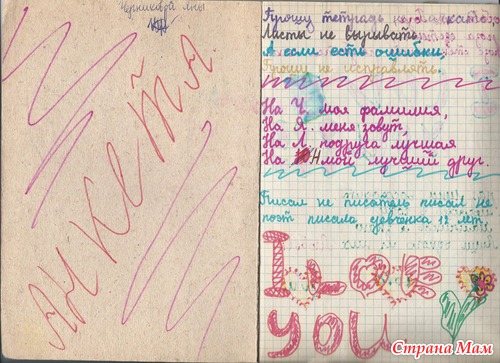 АНКЕТА.
Прошу тетрадь не
Листы не вырывать,
А если есть ошибки,
Прошу не исправлять.
На Ч. моя фамилия,
На Я. меня зовут,
На Л. подруга лучшая
На Н мой лучший друг.
Писал не писатель писал не
поэт писала девчёнка 12 лет.
I LOVE
YOU
Страна Мам